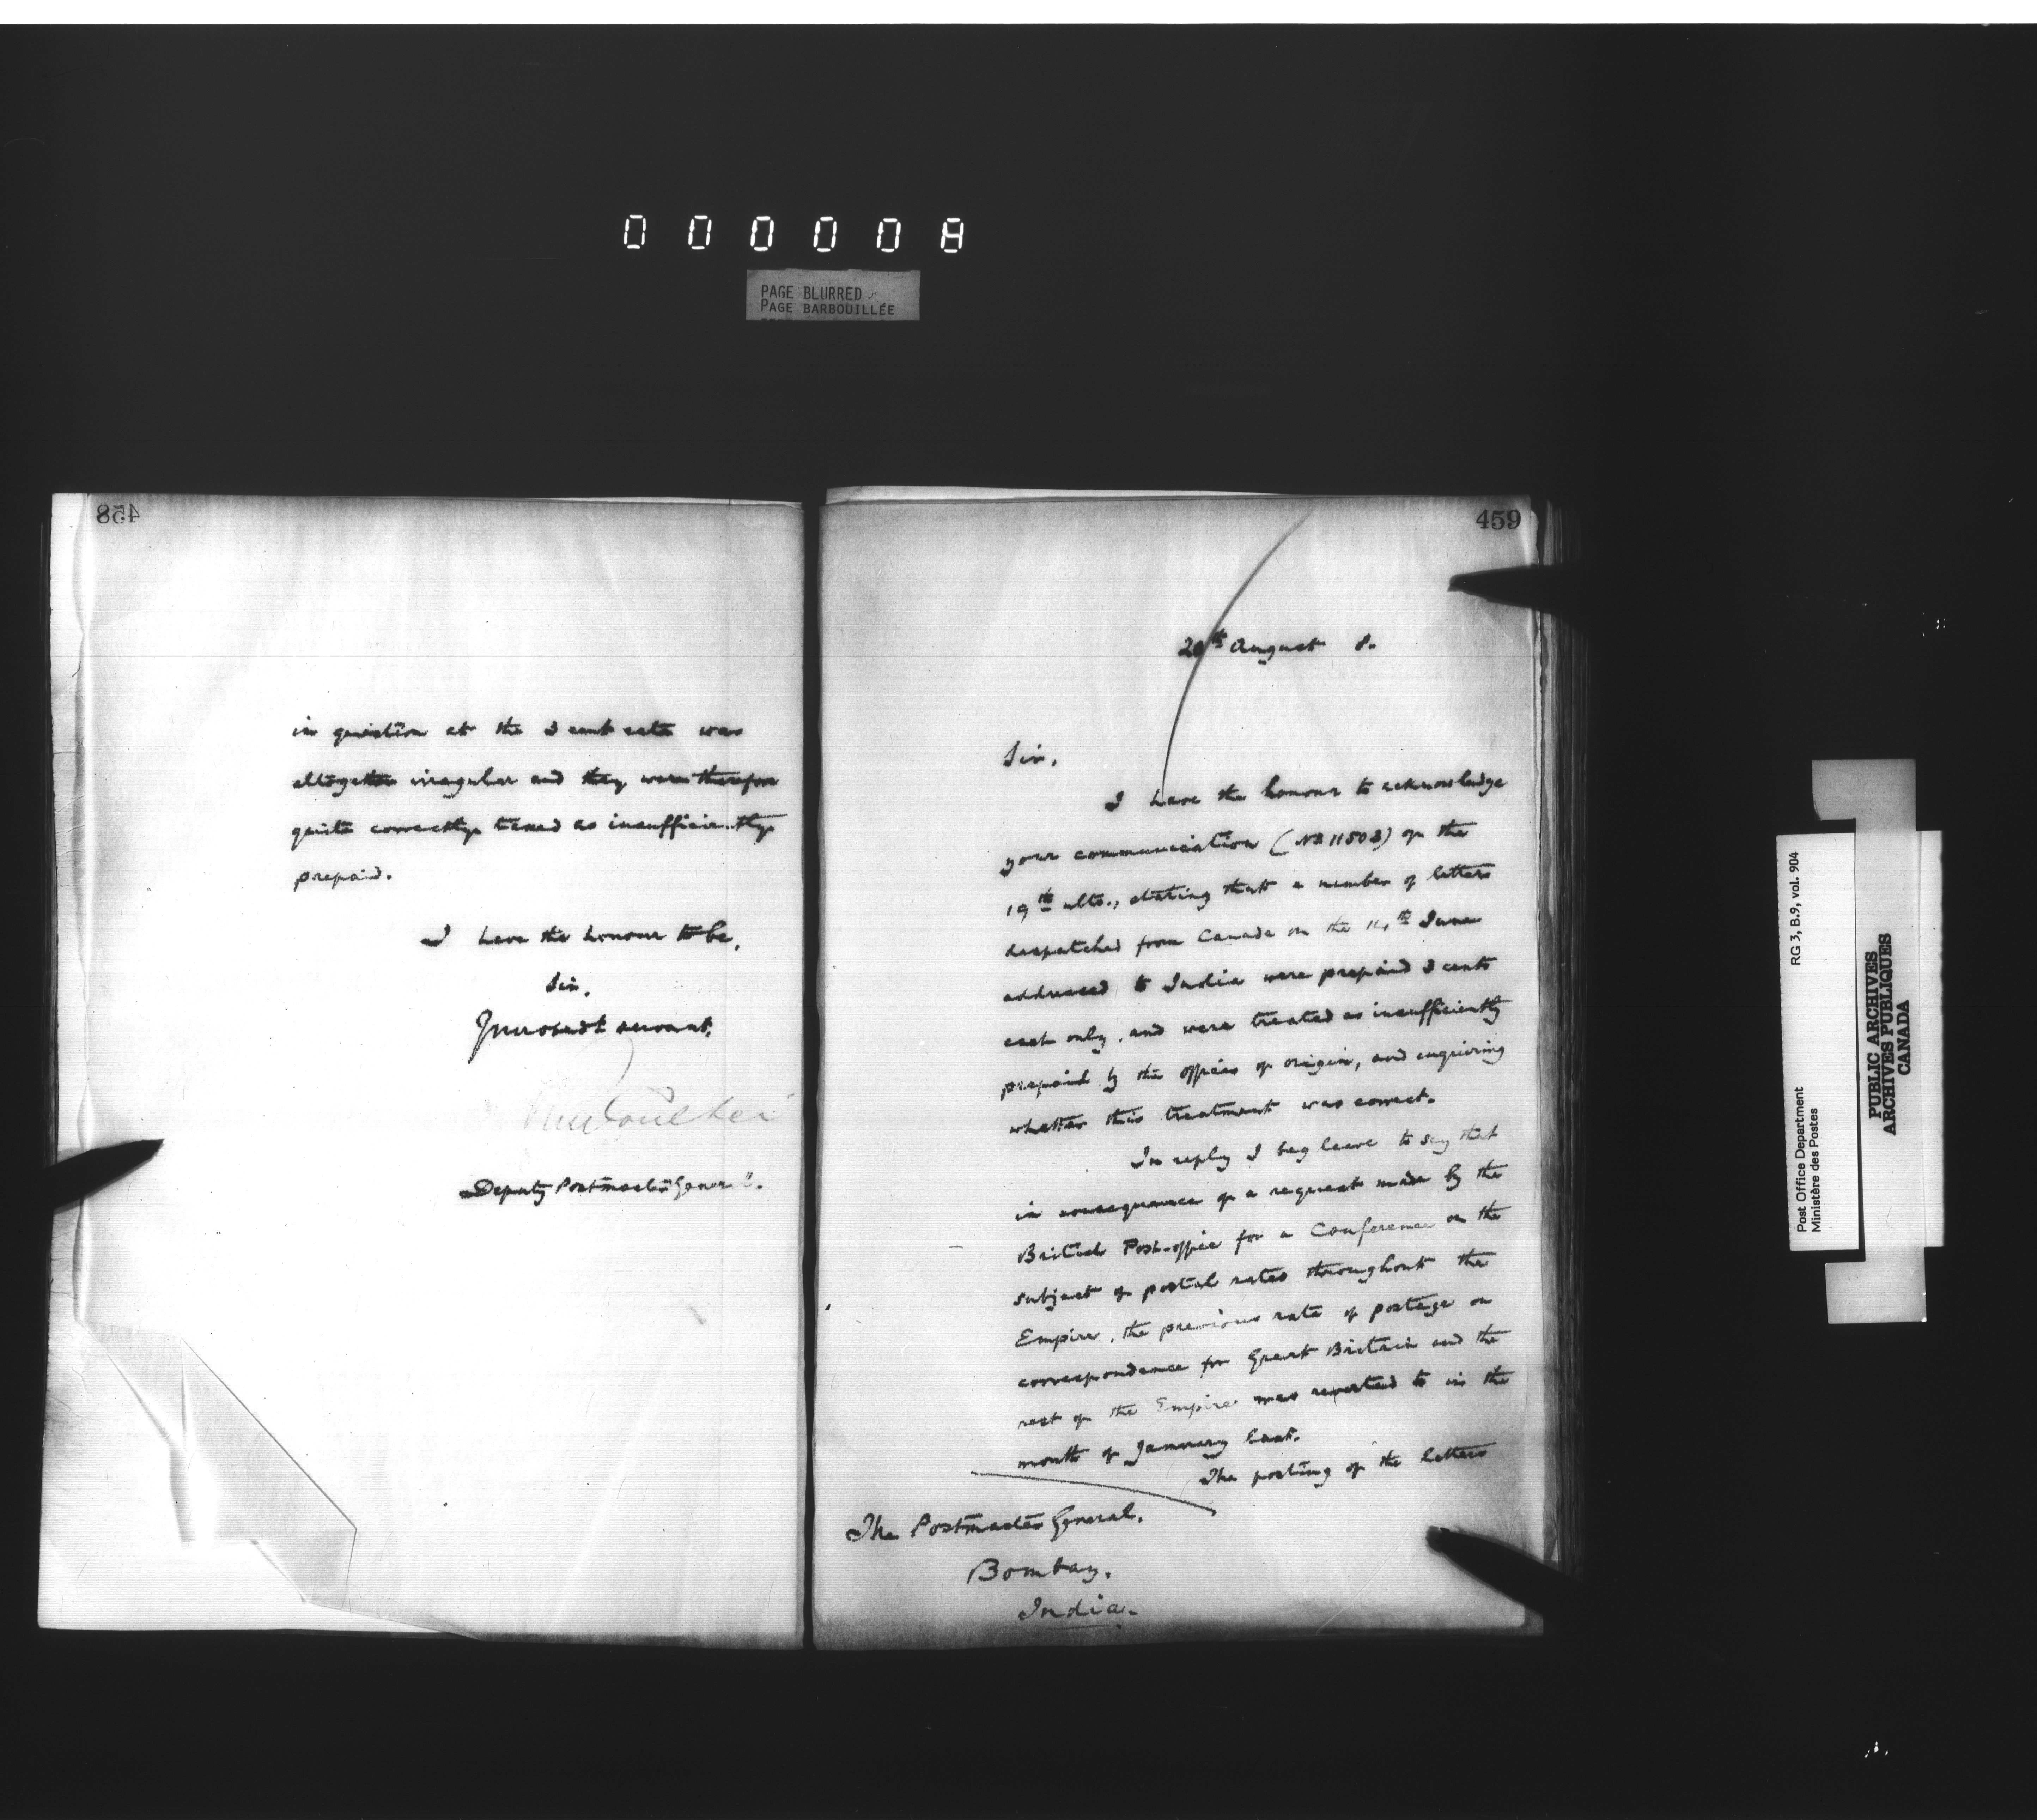 000008
PAGE BLURRED
PAGE BARBOUILLÉE
458
in question at the 3 cent rate was
altogether irregular and they were therefore
quite correctly taxed as insufficiently
prepaid.
I have the honour to be,
Sir,
Your obedt servant,
Deputy Postmaster General.
459
20th August 8.
Sir,
I have the honour to acknowledge
your communication (NB 11503) of the
19th ulto., stating that a number of letters
despatched from Canada on the 14th June
addressed to India were prepaid 3 cents
each only, and were treated as insufficiently
prepaid by the office of origin, and enquiring
whether this treatment was correct.
In reply I beg leave to say that
in consequence of a request made by the
British Post-office for a Conference on the
subject of postal rates throughout the
Empire, the previous rate of postage on
correspondence for Great Britain and the
rest of the Empire was reverted to in the
month of January last.
The posting of the letters
The Postmaster General,
Bombay,
India.
Post Office Department
Ministère des Postes
RG 3, B.9, vol. 904
PUBLIC ARCHIVES
ARCHIVES PUBLIQUES
CANADA